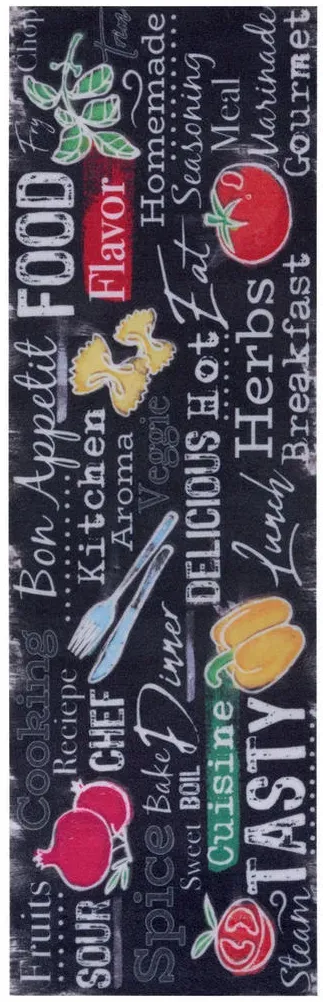 Fruits
SOUR
Cooking
Reciepe
CHEF
Bon Appetit
Kitchen
Aroma
Veggie
FOOD
Flavor
Fry
Chop
Homemade
Seasoning
Meal
Marinade
Gourmet
Spice
Bake
Dinner
Sweet
BOIL
Cuisine
DELICIOUS
Hot
Eat
Steam
TASTY
Lunch
Herbs
Breakfast